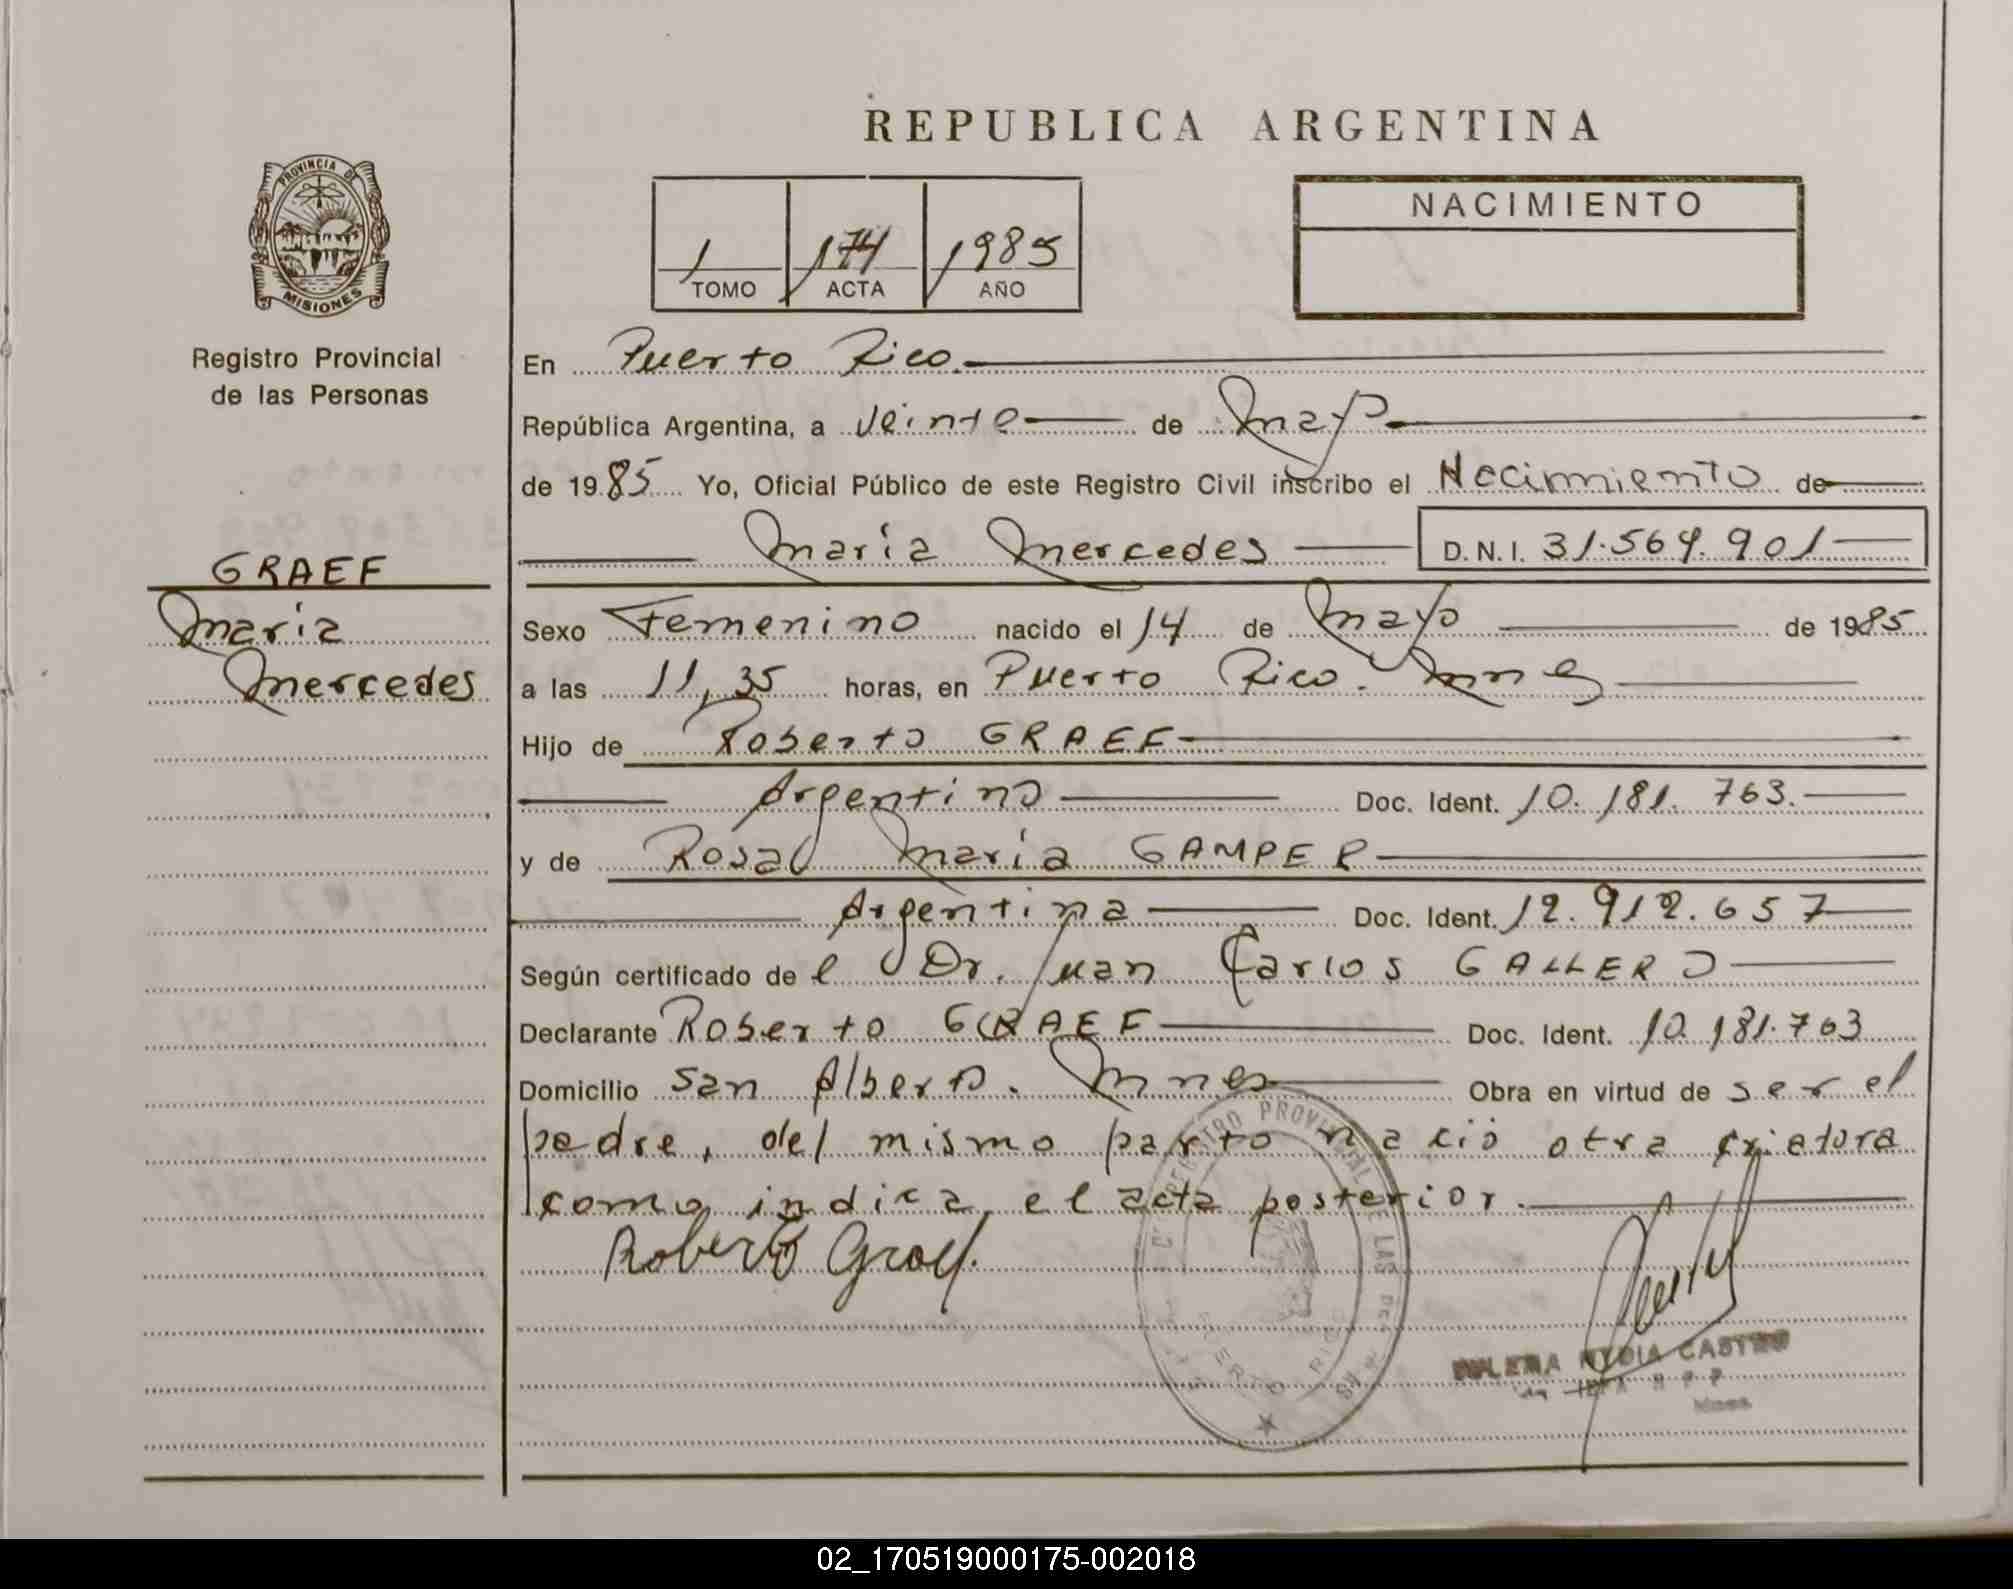 REPUBLICA ARGENTINA
PROVINCIA DE
MISIONES
Registro Provincial
de las Personas
1 174 1985
TOMO ACTA AÑO
NACIMIENTO
En Puerto Rico.
República Argentina, a veinte de Mayo
de 1985 Yo, Oficial Público de este Registro Civil inscribo el Nacimiento de
María Mercedes D.N.I. 31.564.901
GRAEF
María
Mercedes
Sexo Femenino nacido el 14 de Mayo de 1985
a las 11,35 horas, en Puerto Rico. Mnes
Hijo de Roberto GRAEF
Argentino Doc. Ident. 10.181.763.
y de Rosa María GAMPER
Argentina Doc. Ident. 12.912.657
Según certificado de l Dr. Juan Carlos GALLERO
Declarante Roberto GRAEF Doc. Ident. 10.181.763
Domicilio San Alberto. Mnes Obra en virtud de ser el
padre, del mismo parto nació otra criatura
como indica el acta posterior.
Roberto Graef.
REGISTRO PROVINCIAL DE LAS
PUERTO RICO
NYDIA CASTRO
02_170519000175-002018